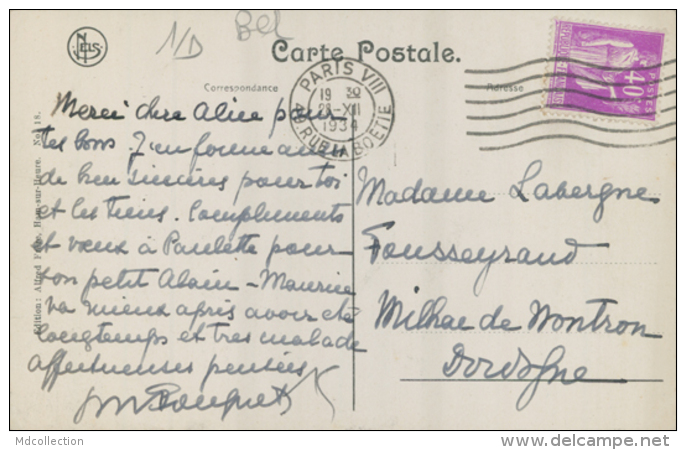 1/D
Bel
NELS
Carte Postale.
Correspondance
Adresse
PARIS VIII
19 30
28-XII
1934
R. RUE LA BOETIE
POSTES
40
Edition: Alfred Ham-sur-Heure. No 18.
Merci chère Alice pour
tes bons. J'en forme aussi
de bien sincères pour toi
et les tiens. Compliments
et vœux à Paulette pour
son petit Alain - Maurice
va mieux après avoir été
longtemps et très malade
affectueuses pensées
Madame Labergne
Fousseyraud
Milhac de Nontron
Dordogne
Mdcollection
www.delcampe.net